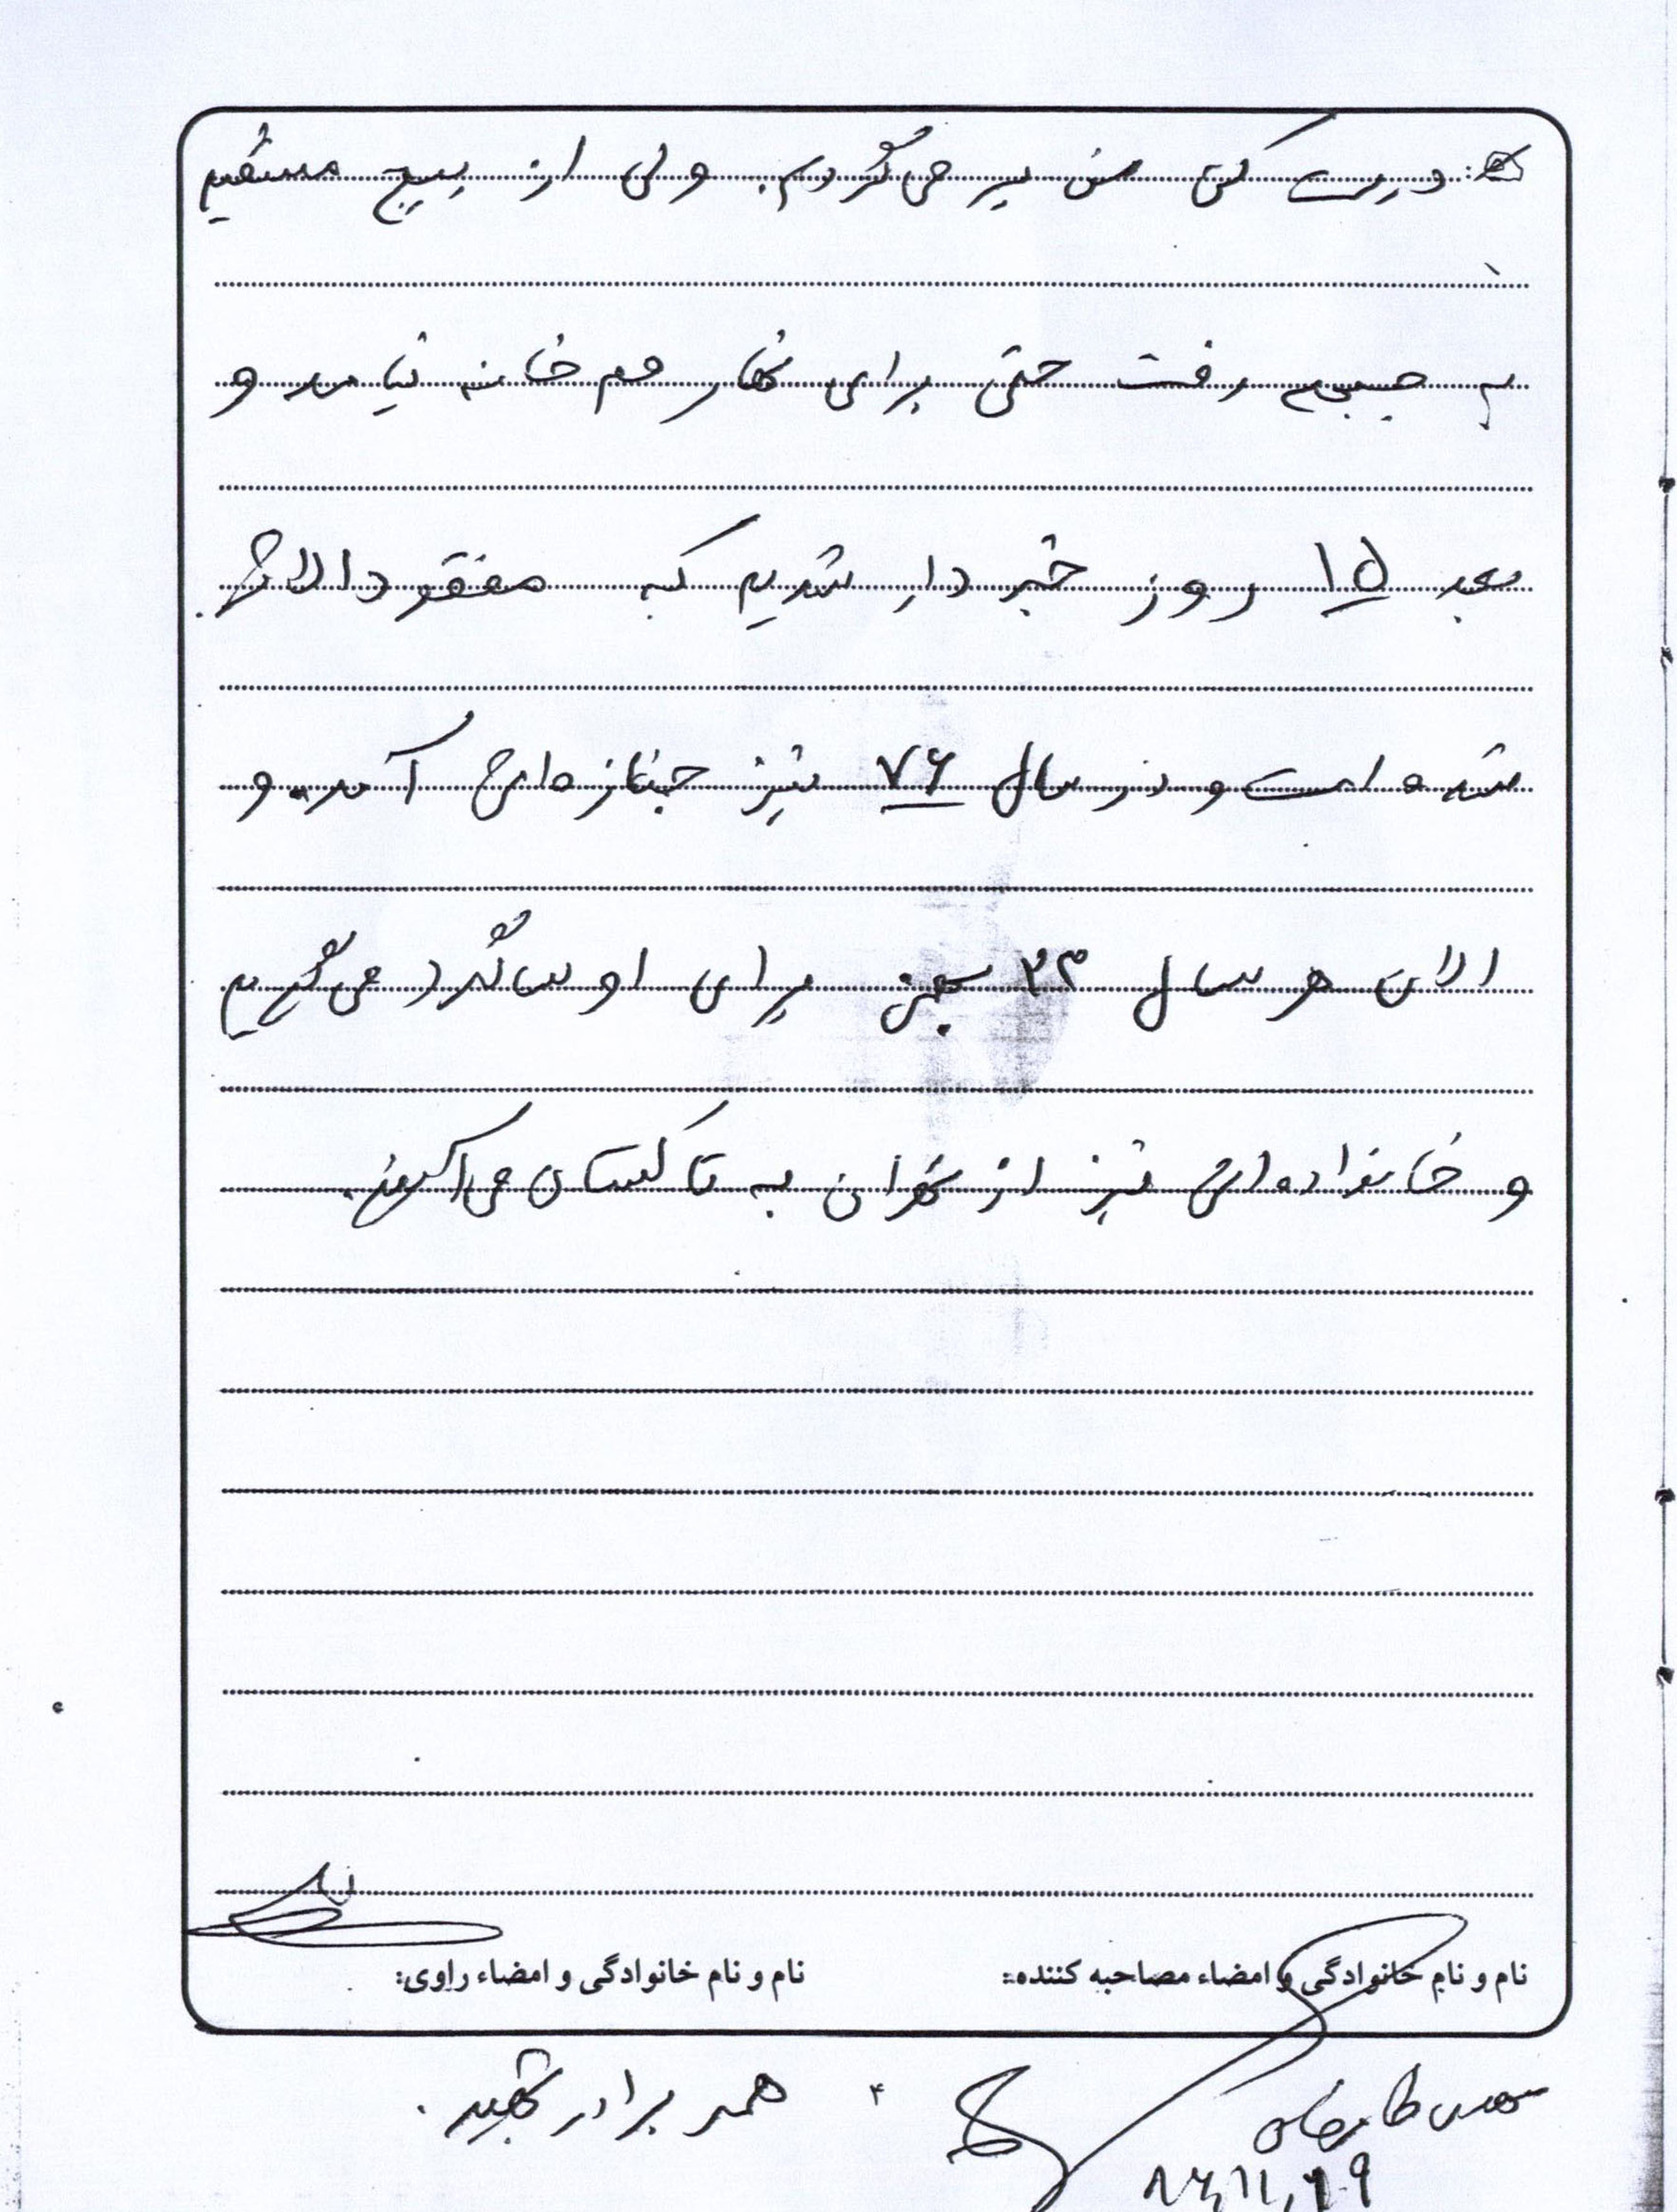 درست کن من برمی‌گردم. ولی از بسیج مستقیم
به جبهه رفت حتی برای نهار هم خانه نیامد و
بعد ۱۵ روز خبردار شدیم که مفقودالاثر
شده است و در سال ۷۶ نیز جنازه‌اش آمد و
الان هر سال ۲۳ بهمن برای او سالگرد می‌گیریم
و خانواده‌اش نیز از تهران به تاکستان می‌آیند.
نام و نام خانوادگی و امضاء مصاحبه کننده:
نام و نام خانوادگی و امضاء راوی:
طاهرخانی
۴
همسر برادر شهید.